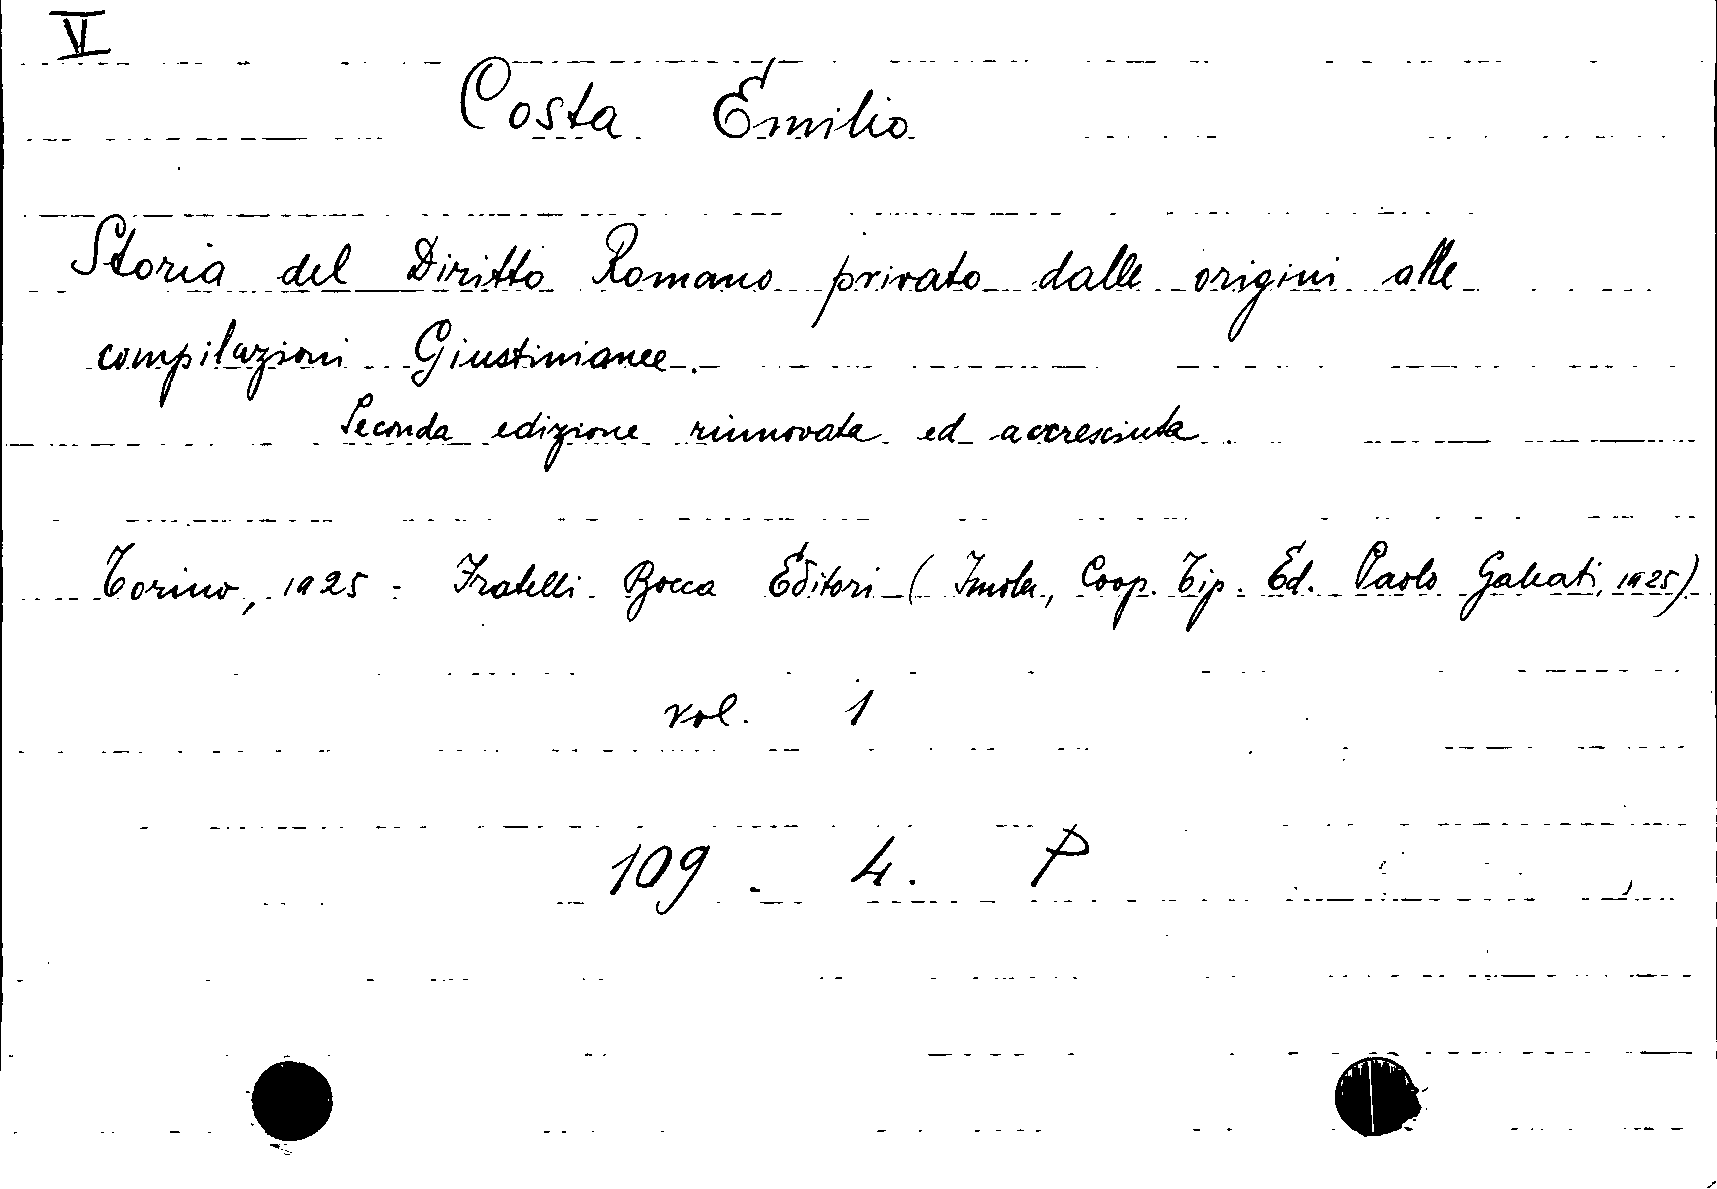 VI
Costa Emilio
Storia del Diritto Romano privato dalle origini alle
compilazioni Giustinianee.
Seconda edizione rinnovata ed accresciuta
Torino, 1925 - Fratelli Bocca Editori (Imola, Coop. Tip. Ed. Paolo Galeati, 1925)
vol. 1
109 - 4. P